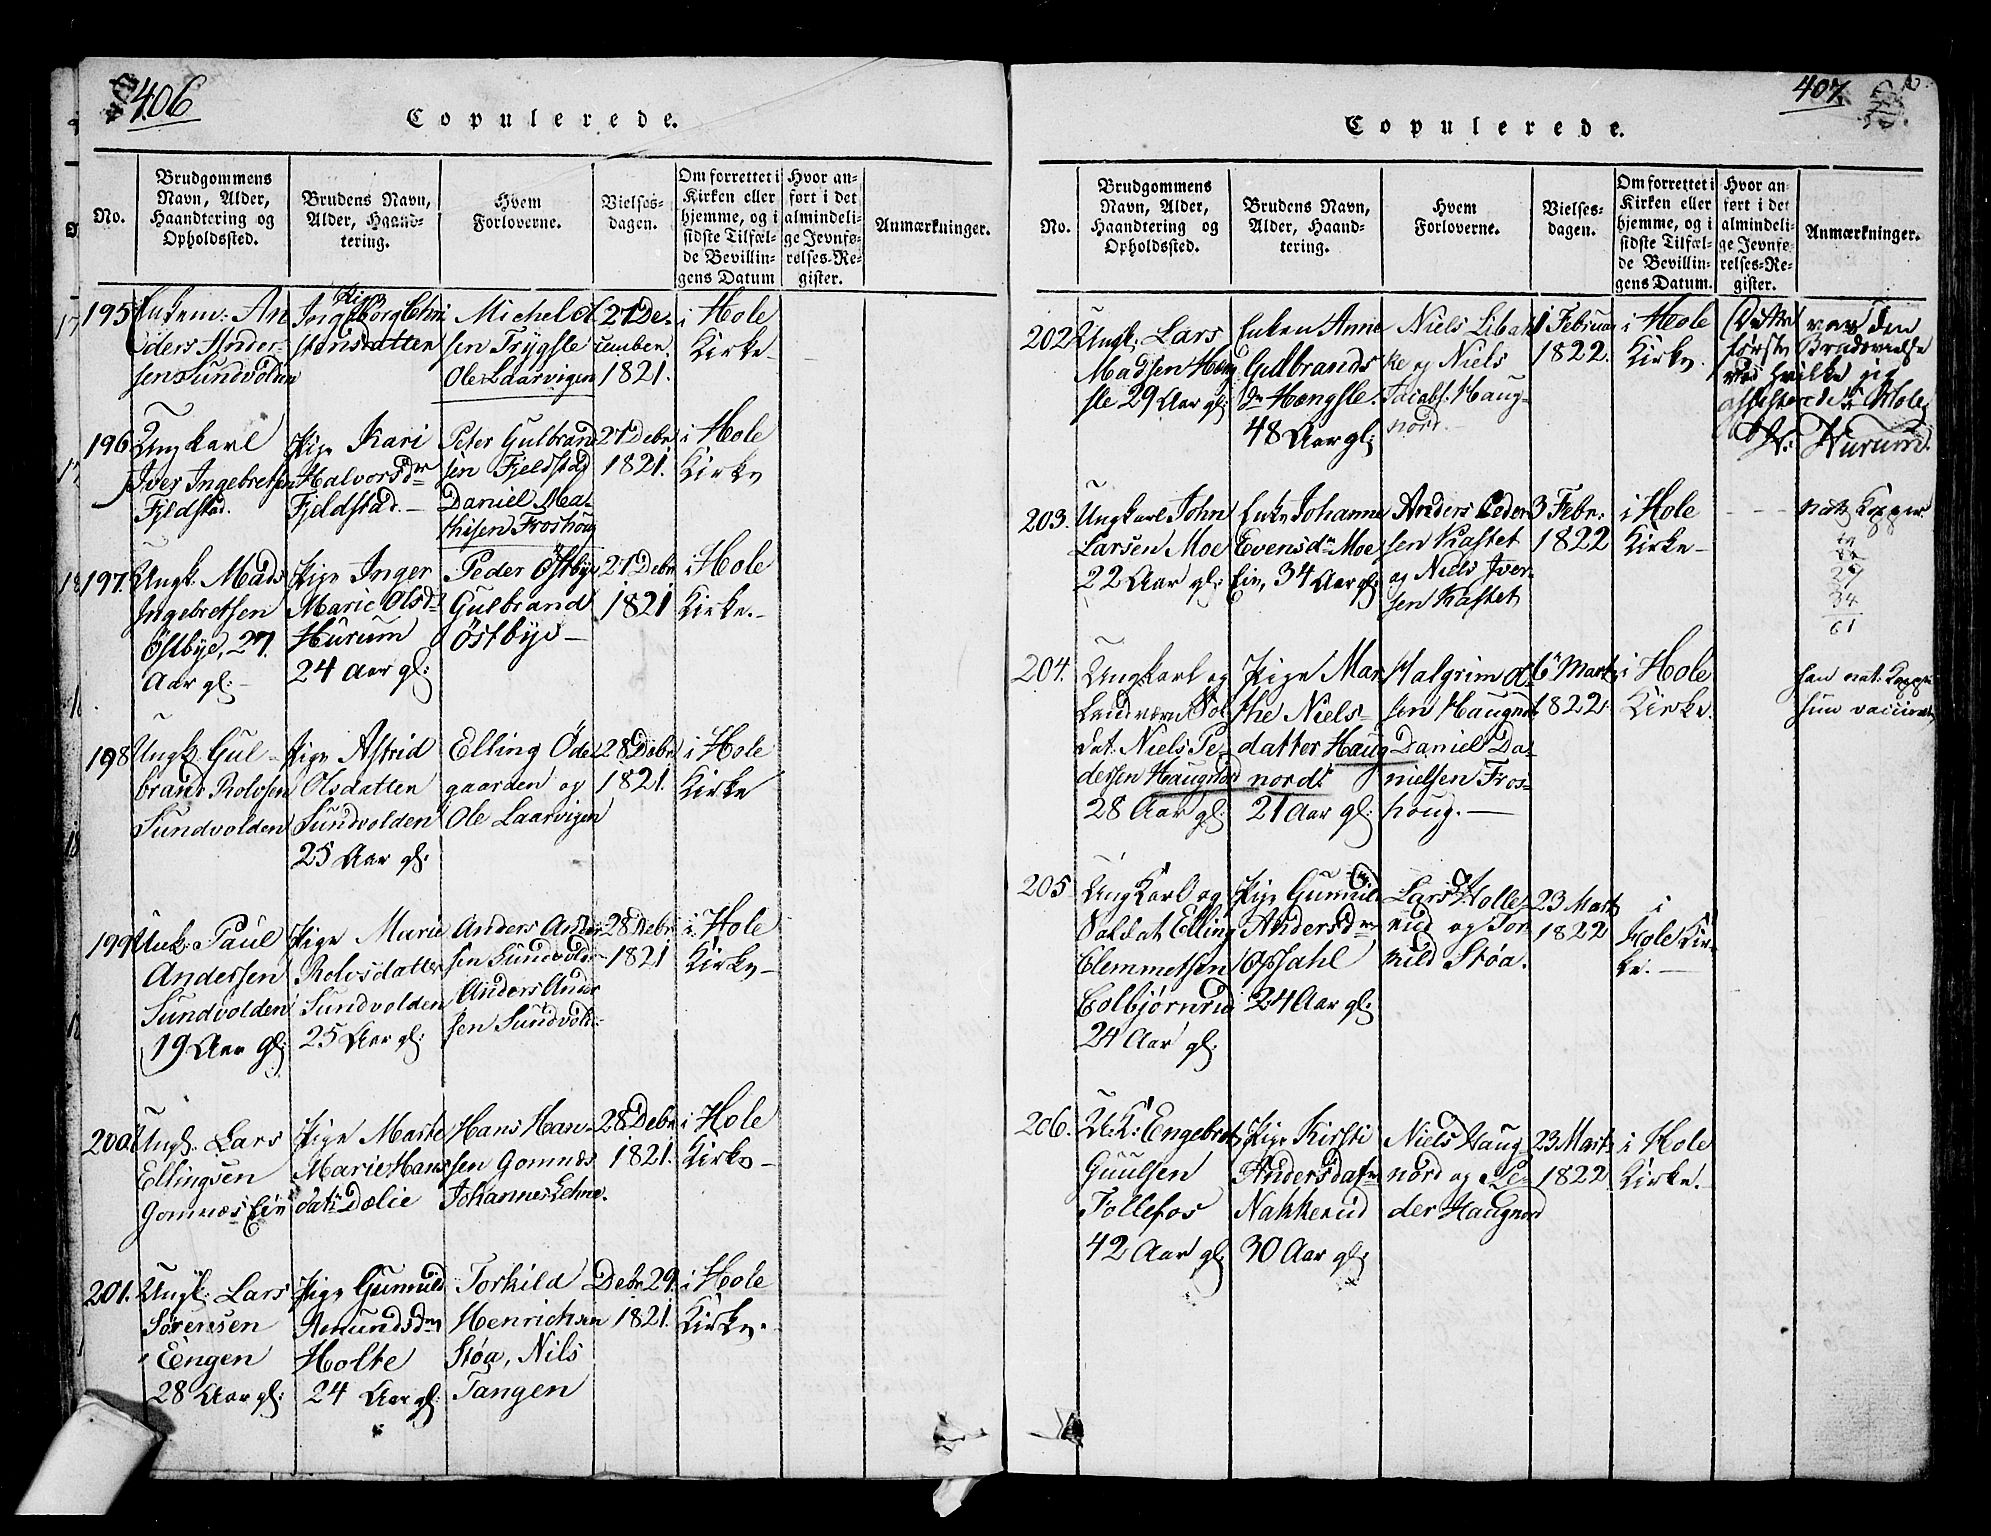 406
Copulerede.
No.
Brudgommens
Navn, Alder,
Haandtering og
Opholdssted.
Brudens Navn,
Alder, Haand-
tering.
Hvem
Forloverne.
Vielses-
dagen.
Om forrettet i
Kirken eller
hjemme, og i
sidste Tilfæl-
de Bevillin-
gens Datum
Hvor an-
ført i det
almindeli-
ge Jevnfø-
relses-Re-
gister.
Anmærkninger.
195
Enkem: An
ders Ander-
sen Sundvolden
Ingeborg Chri
stensdatter
Michel Ol
sen Trÿgsle
Ole Laarvigen
27 De-
cember
1821.
i Hole
Kirke
196
Ungkarl
Iver Ingebretsen
Fjeldstad.
Pige Kari
Halvorsdr
Fjeldstad.
Peter Gulbrand
sen Fjeldstad
Daniel Mat
hisen Froshoug
27 Debr
1821.
i Hole
Kirke
197.
Ungk. Mads
Ingebretsen
Østbye, 27.
Aar gl.
Pige Inger
Marie Olsdr
Hurum
24 Aar gl:
Peder Østbye
Gulbrand
Østbye
27 Debr
1821
i Hole
Kirke.
198
Ungk. Gul-
brand Rolvsen
Sundvolden
Pige Astrid
Olsdatter
Sundvolden
25 Aar gl.
Elling Øde
gaarden og
Ole Laarvigen
28 Debr
1821.
i Hole
Kirke
199
Unk: Paul
Andersen
Sundvolden
19 Aar gl:
Pige Marie
Rolvsdatter
Sundvolden
25 Aar gl:
Anders Ander
sen Sundvolde
Anders Ander
sen Sundvold:
28 Debr
1821
i Hole
Kirke
200.
Ungk. Lars
Ellingsen
Gomnæs Eie
Pige Marte
Marie Hans
datr Dælie
Hans Han-
sen Gomnæs
Johannes Lehne.
28 Debr
1821.
i Hole
Kirke
201.
Ungk. Lars
Sørensen
Engen
28 Aar gl:
Pige Gunnild
Amundsdr
Holte
24 Aar gl:
Torkild
Henrichsen
Støa, Nils
Tangen
Debr 29.
1821.
i Hole
Kirke.
407.
Copulerede.
No.
Brudgommens
Navn, Alder,
Haandtering og
Opholdssted.
Brudens Navn,
Alder, Haand-
tering.
Hvem
Forloverne.
Vielses-
dagen.
Om forrettet i
Kirken eller
hjemme, og i
sidste Tilfæl-
de Bevillin-
gens Datum.
Hvor an-
ført i det
almindeli-
ge Jevnfø-
relses-Re-
gister.
Anmærkninger.
202
Ungk. Lars
Madsen Hæng
sle 29 Aar gl:
Enken Anne
Gulbrands
dr Hængsle.
48 Aar gl:
Niels Libak
ke og Niels
Jacobs. Haug-
nord.
1 Februar
1822.
i Hole
Kirke.
Dette var den
første Brudevielse
ved hvilke jeg
assisterede i Hole
Hurum.
203.
Ungkarl John
Larsen Moe
22 Aar gl:
Enke Johanne
Evensdr Moe
Eie, 34 Aar gl:
Anders Peder
sen Rastet
og Niels Iver-
sen Rastet
3 Febr.
1822
i Hole
Kirke
nat: Kopper.
27
34
61
204.
Ungkarl og
Landværn Sol
dat. Niels Pe-
dersen Haugnord
28 Aar gl:
Pige Mar
the Niels-
datter Haug
nord.
21 Aar gl:
Halgrim Ol-
sen Haugnor
Daniel Da-
nielsen Fros-
houg.
6 Marts
1822.
i Hole
Kirke.
han nat. Kopper
hun vaccineret
205
Ungkarl og
Soldat Elling
Clemmetsen
Colbjørnrud
24 Aar gl.
Pige Gunnild
Andersdr
Opsahl
24 Aar gl:
Lars Holle-
rud og Tor
kild Støa.
23 Marts
1822
i
Hole Kir-
ke.
206.
U.K: Engebret
Guulsen
Follefos
42 Aar gl:
Pige Kirsti
Andersdatr
Nakkerud
30 Aar gl:
Niels Haug-
nord og Pe-
der Haugnord
23 Mart
1822
i Hole
Kirke.